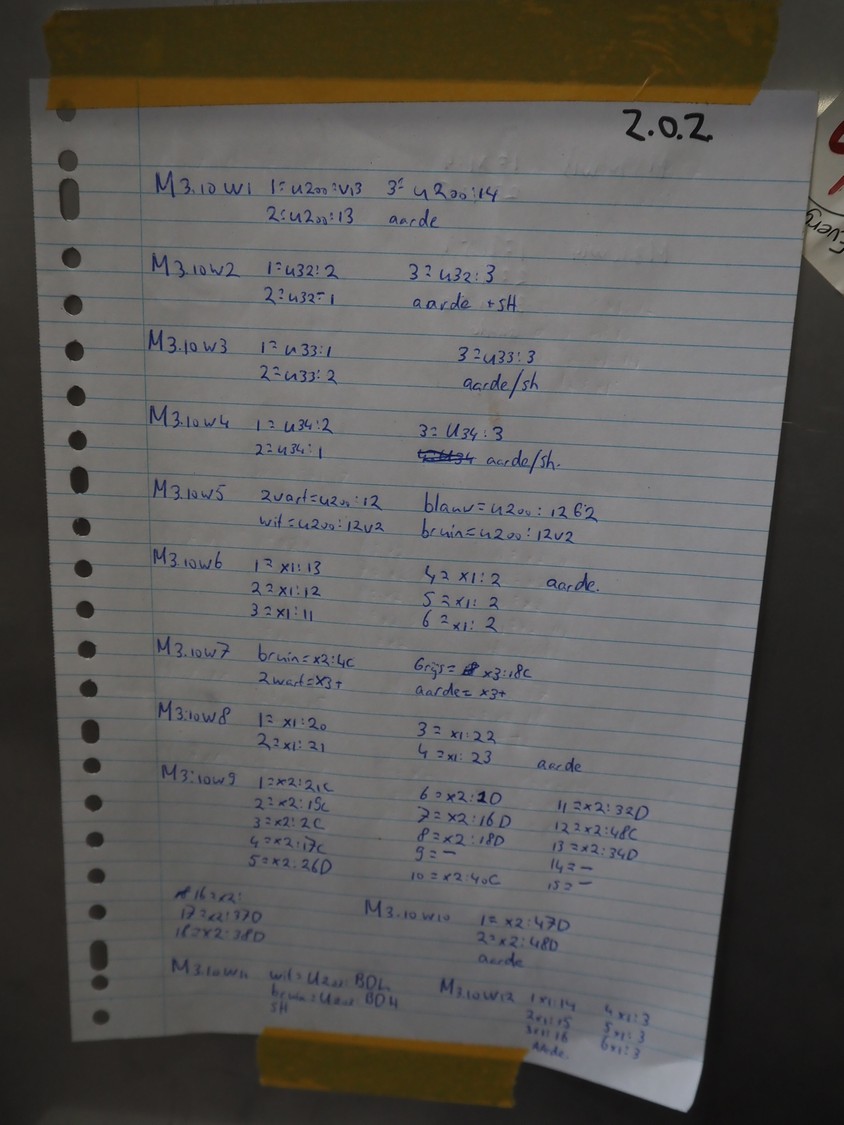 2.0.2.
Every
M3.10W1 1=U200:V13 3=U200:14
2=U200:13 aarde
M3.10W2 1=U32:2 3=U32:3
2=U32=1 aarde +SH
M3.10W3 1=U33:1 3=U33:3
2=U33:2 aarde/sh
M3.10W4 1=U34:2 3=U34:3
2=U34:1 aarde/sh.
M3.10W5 zwart=U200:12 blauw=U200:12
wit=U200:12V2 bruin=U200:12V2
M3.10W6 1=X1:13 4=X1:2 aarde.
2=X1:12 5=X1:2
3=X1:11 6=X1:2
M3.10W7 bruin=X2:4C Grijs=X3:18C
zwart=X3+ aarde=X3+
M3.10W8 1=X1:20 3=X1:22
2=X1:21 4=X1:23 aarde
M3.10W9 1=X2:21C 6=X2:1D 11=X2:32D
2=X2:15C 7=X2:16D 12=X2:48C
3=X2:2C 8=X2:18D 13=X2:34D
4=X2:17C 9=- 14=-
5=X2:26D 10=X2:40C 15=-
16=X2:
17=X2:37D M3.10W10 1=X2:47D
18=X2:38D 2=X2:48D
aarde
M3.10W11 wit=U200: M3.10W12 1X1:14 4X1:3
bruin=U200: 2X1:15 5X1:3
SH 3X1:16 6X1:3
aarde.